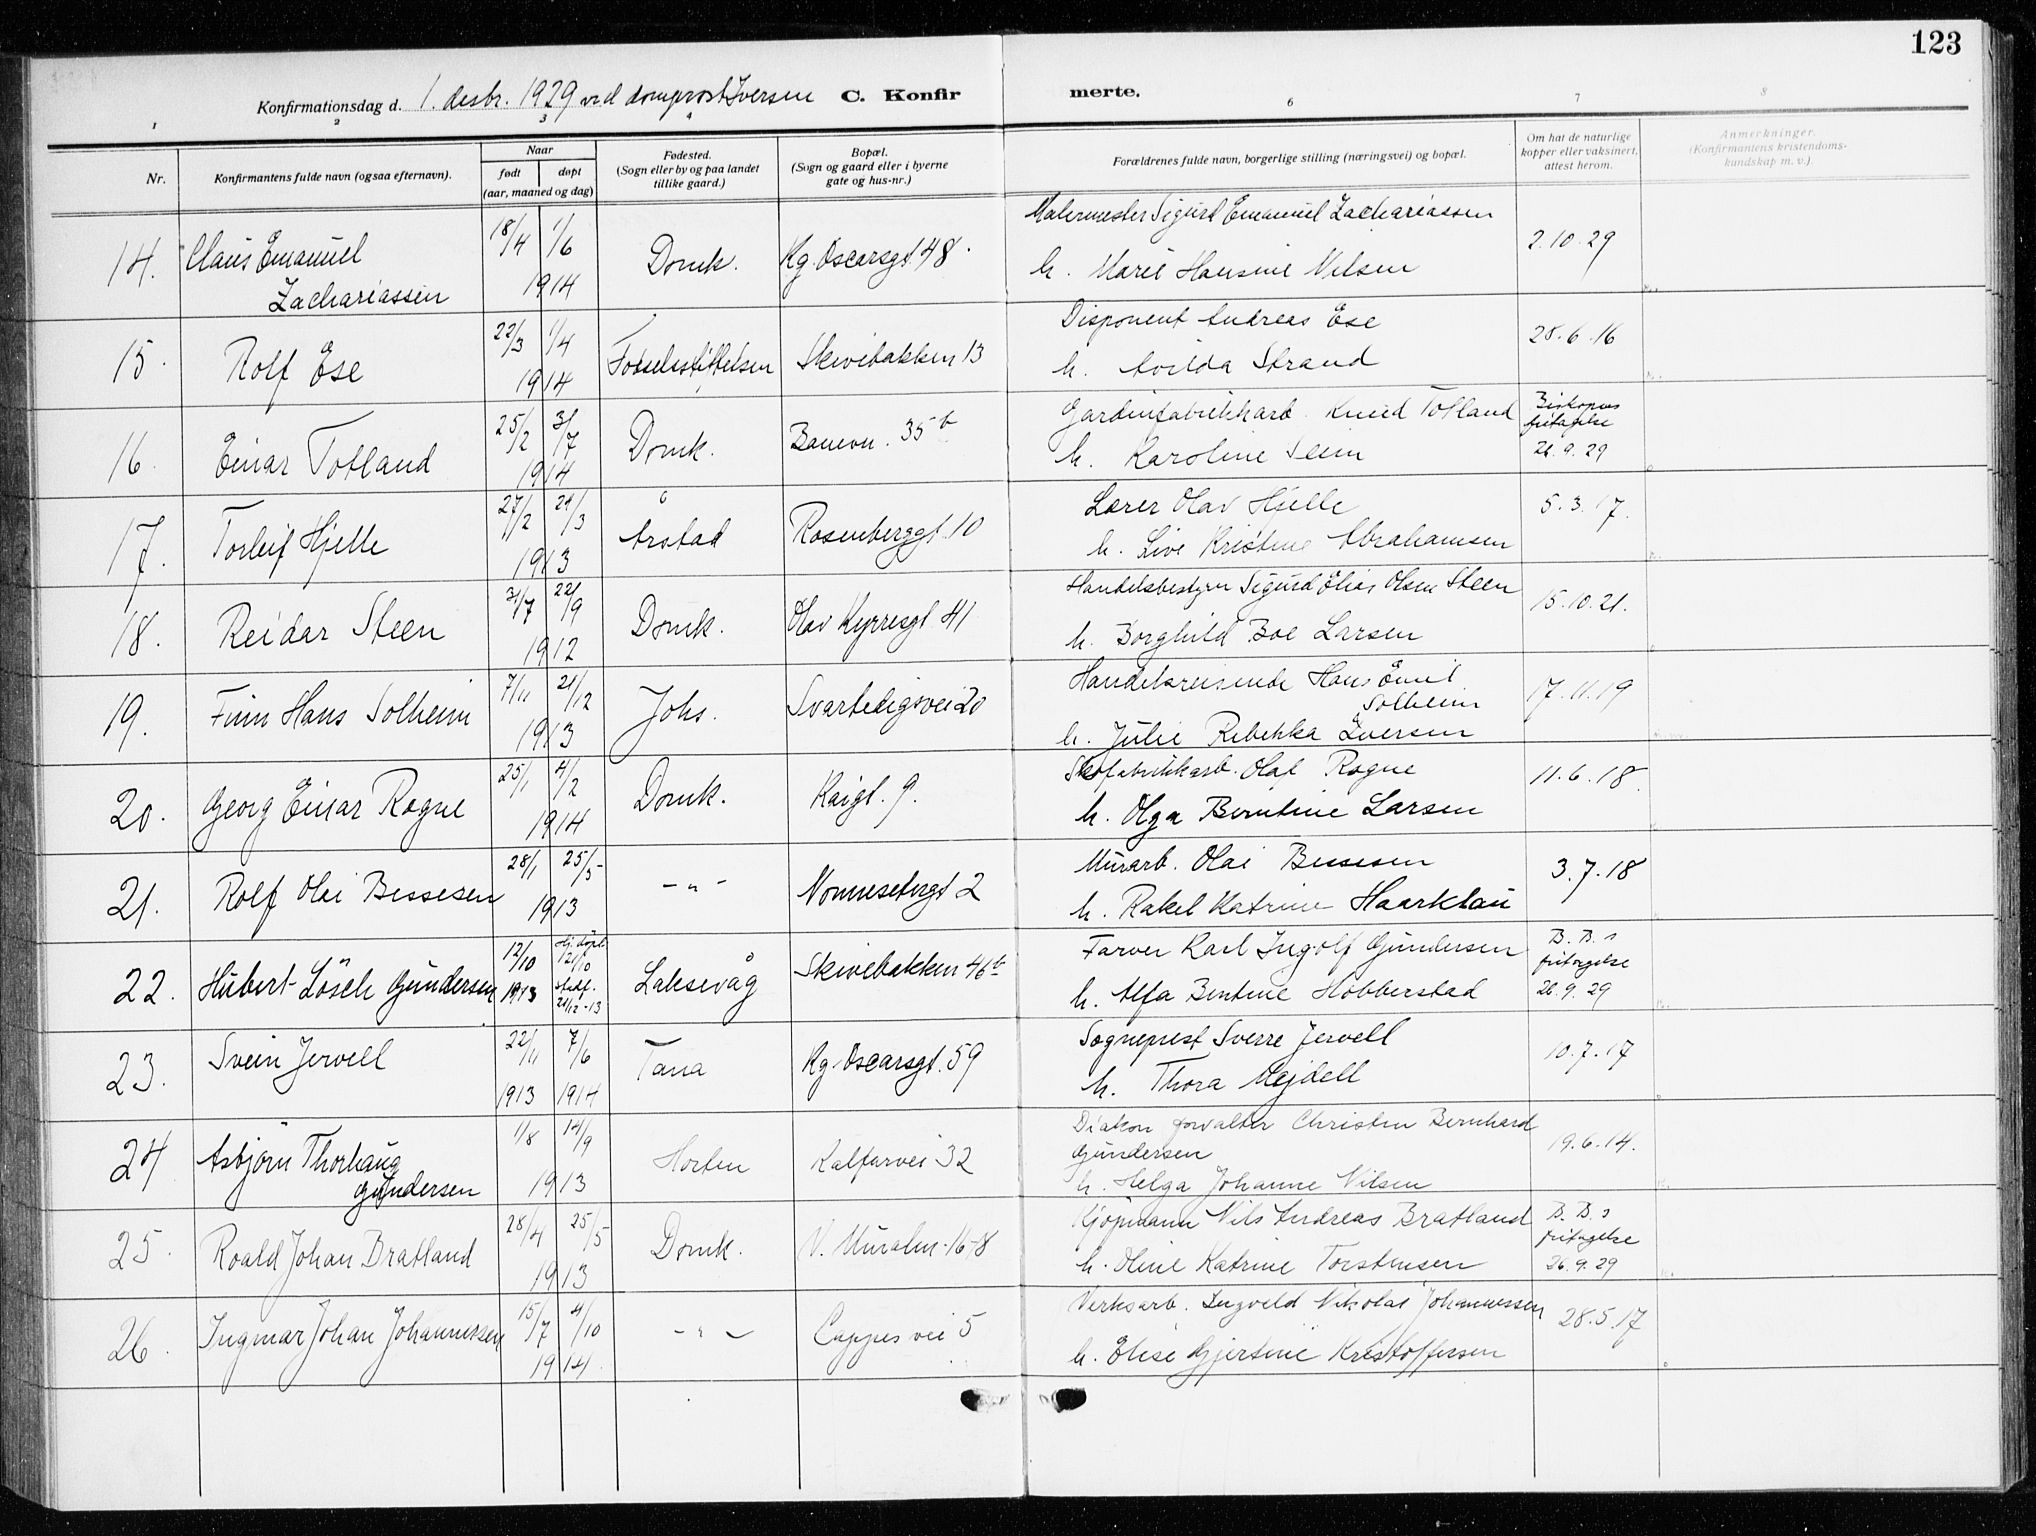 123
Konfirmationsdag d. 1. desbr. 1929 ved domprost Iversen C. Konfirmerte.
1 2 3 4 6 7 8
Nr.
Konfirmantens fulde navn (ogsaa efternavn).
Naar
født døpt
(aar, maaned og dag)
Fødested.
(Sogn eller by og paa landet
tillike gaard.)
Bopæl.
(Sogn og gaard eller i byerne
gate og hus-nr.)
Forældrenes fulde navn, borgerlige stilling (næringsvei) og bopæl.
Om hat de naturlige
kopper eller vaksinert,
attest herom.
Anmerkninger.
(Konfirmantens kristendoms-
kundskap m. v.).
14. Claus Emanuel
Zachariassen
18/4 1/6
1914
Domk.
Kg. Oscarsgt. 48.
Malermester Sigurd Emanuel Zachariassen
h. Marie Hansine Nilsen
2.10.29
15. Rolf Ese
22/3 1/4
1914
Fødselsstiftelsen
Skivebakken 13
Disponent Andreas Ese
h. Avilda Strand
28.6.16
16. Einar Totland
25/2 3/7
1914
Domk.
Banevn. 35 b
Gardinfabrikkarb. Knud Totland
h. Karoline Seim
Biskopens
fritagelse
26.9.29
17. Torleif Hjelle
27/2 24/3
1913
Årstad
Rosenberggt. 10
Lærer Olav Hjelle
h. Live Kristine Abrahamsen
5.3.17.
18. Reidar Steen
3/7 22/9
1912
Domk.
Olav Kyrresgt 41
Handelsbestyrer Sigurd Elias Olsen Steen
h. Borghild Boe Larsen
15.10.21.
19. Finn Hans Solheim
7/11 21/12
1913
Johs.
Svartedigsvei 20
Handelsreisende Hans Emil
Solheim
h. Julie Rebekka Iversen
17.11.19
20. Georg Einar Rogne
25/1 4/2
1914
Domk.
Kaigt. 9.
Skofabrikkarb. Olaf Rogne
h. Olga Berntine Larsen
11.6.18.
21. Rolf Olai Bessesen
28/1 25/5
1913
- " -
Nonnesetergt 2
Murarb. Olai Bessesen
h. Rakel Katrine Haarklau
3.7.18
22. Hubert Lösch Gundersen
12/10 Hj. døpt
12/10
1913 stadf.
21/12-13
Laksevåg
Skivebakken 46 b
Farver Karl Ingolf Gundersen
h. Alfa Bentine Hobberstad
B. B.s
fritagelse
26.9.29
23. Svein Jervell
22/11 7/6
1913 1914
Tana
Kg. Oscarsgt. 59
Sogneprest Sverre Jervell
h. Thora Mejdell
10.7.17
24. Asbjörn Thorhaug
Gundersen
1/8 14/9
1913
Horten
Kalfarvei 32
Diakon forvalter Christen Bernhard
Gundersen
h. Helga Johanne Nilsen
19.6.14.
25. Roald Johan Bratland
28/4 25/5
1913
Domk.
V. Muralm. 16-8
Kjøpmann Nils Andreas Bratland
h. Oline Katrine Torstensen
B. B.s
fritagelse
26.9.29
26. Ingmar Johan Johannessen
15/7 4/10
1914.
- " -
Cappes vei 5
Verksarb. Ingvald Nikolai Johannessen
h. Elise Gjertine Kristoffersen
28.5.17